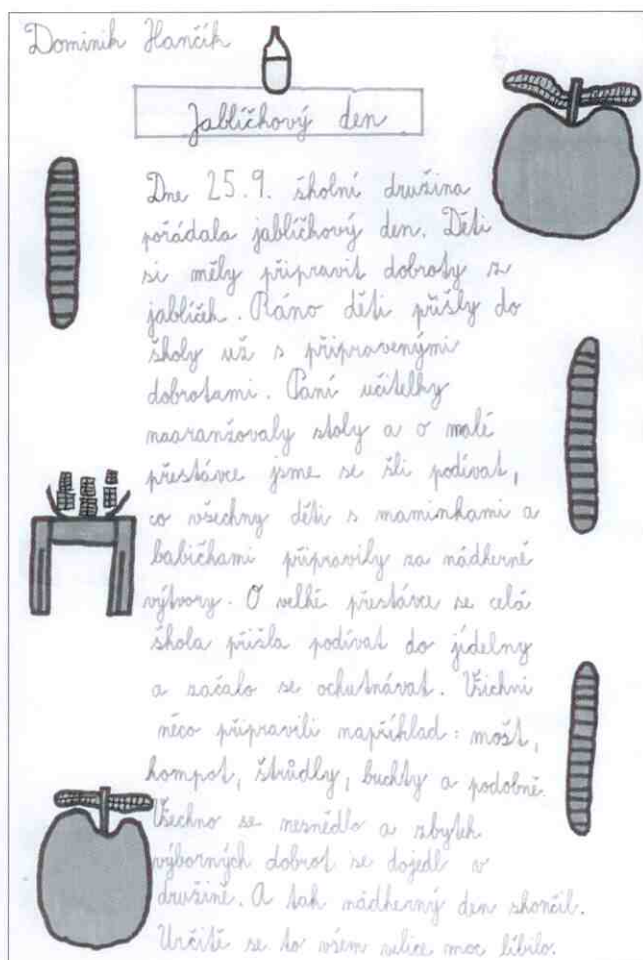 Dominik Hančík
Jablíčkový den
Dne 25.9. školní družina
pořádala jablíčkový den. Děti
si měly připravit dobroty z
jablíček. Ráno děti přišly do
školy už s připravenými
dobrotami. Paní učitelky
naaranžovaly stoly a o malé
přestávce jsme se šli podívat,
co všechny děti s maminkami a
babičkami připravily za nádherné
výtvory. O velké přestávce se celá
škola přišla podívat do jídelny
a začalo se ochutnávat. Všichni
něco připravili například: mošt,
kompot, štrůdly, buchty a podobně.
Všechno se nesnědlo a zbytek
výborných dobrot se dojedl v
družině. A tak nádherný den skončil.
Určitě se to všem velice moc líbilo.